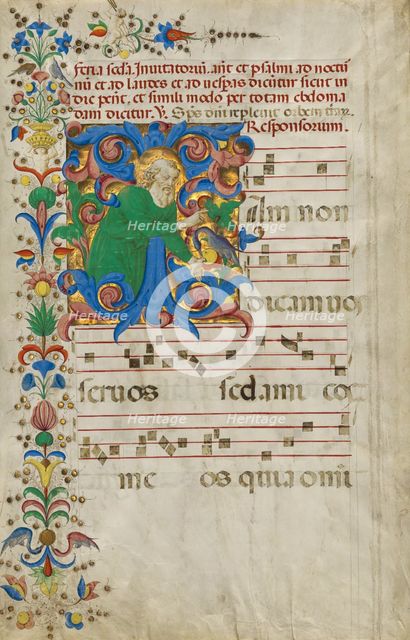 feria scda. Inuitatorium. ant. et psalmi ad noctur
nū et ad laudes et ad uespas dicūtur sicut in
die pent. et simili modo per totam ebdoma
dam dicitur. V. Sps dnī repleuit orbem trraꝝ.
Responsorium.
am non
dicam uos
seruos sed. ami cos
me os quia omī
Heritage Heritage
Heritage Heritage
Heritage